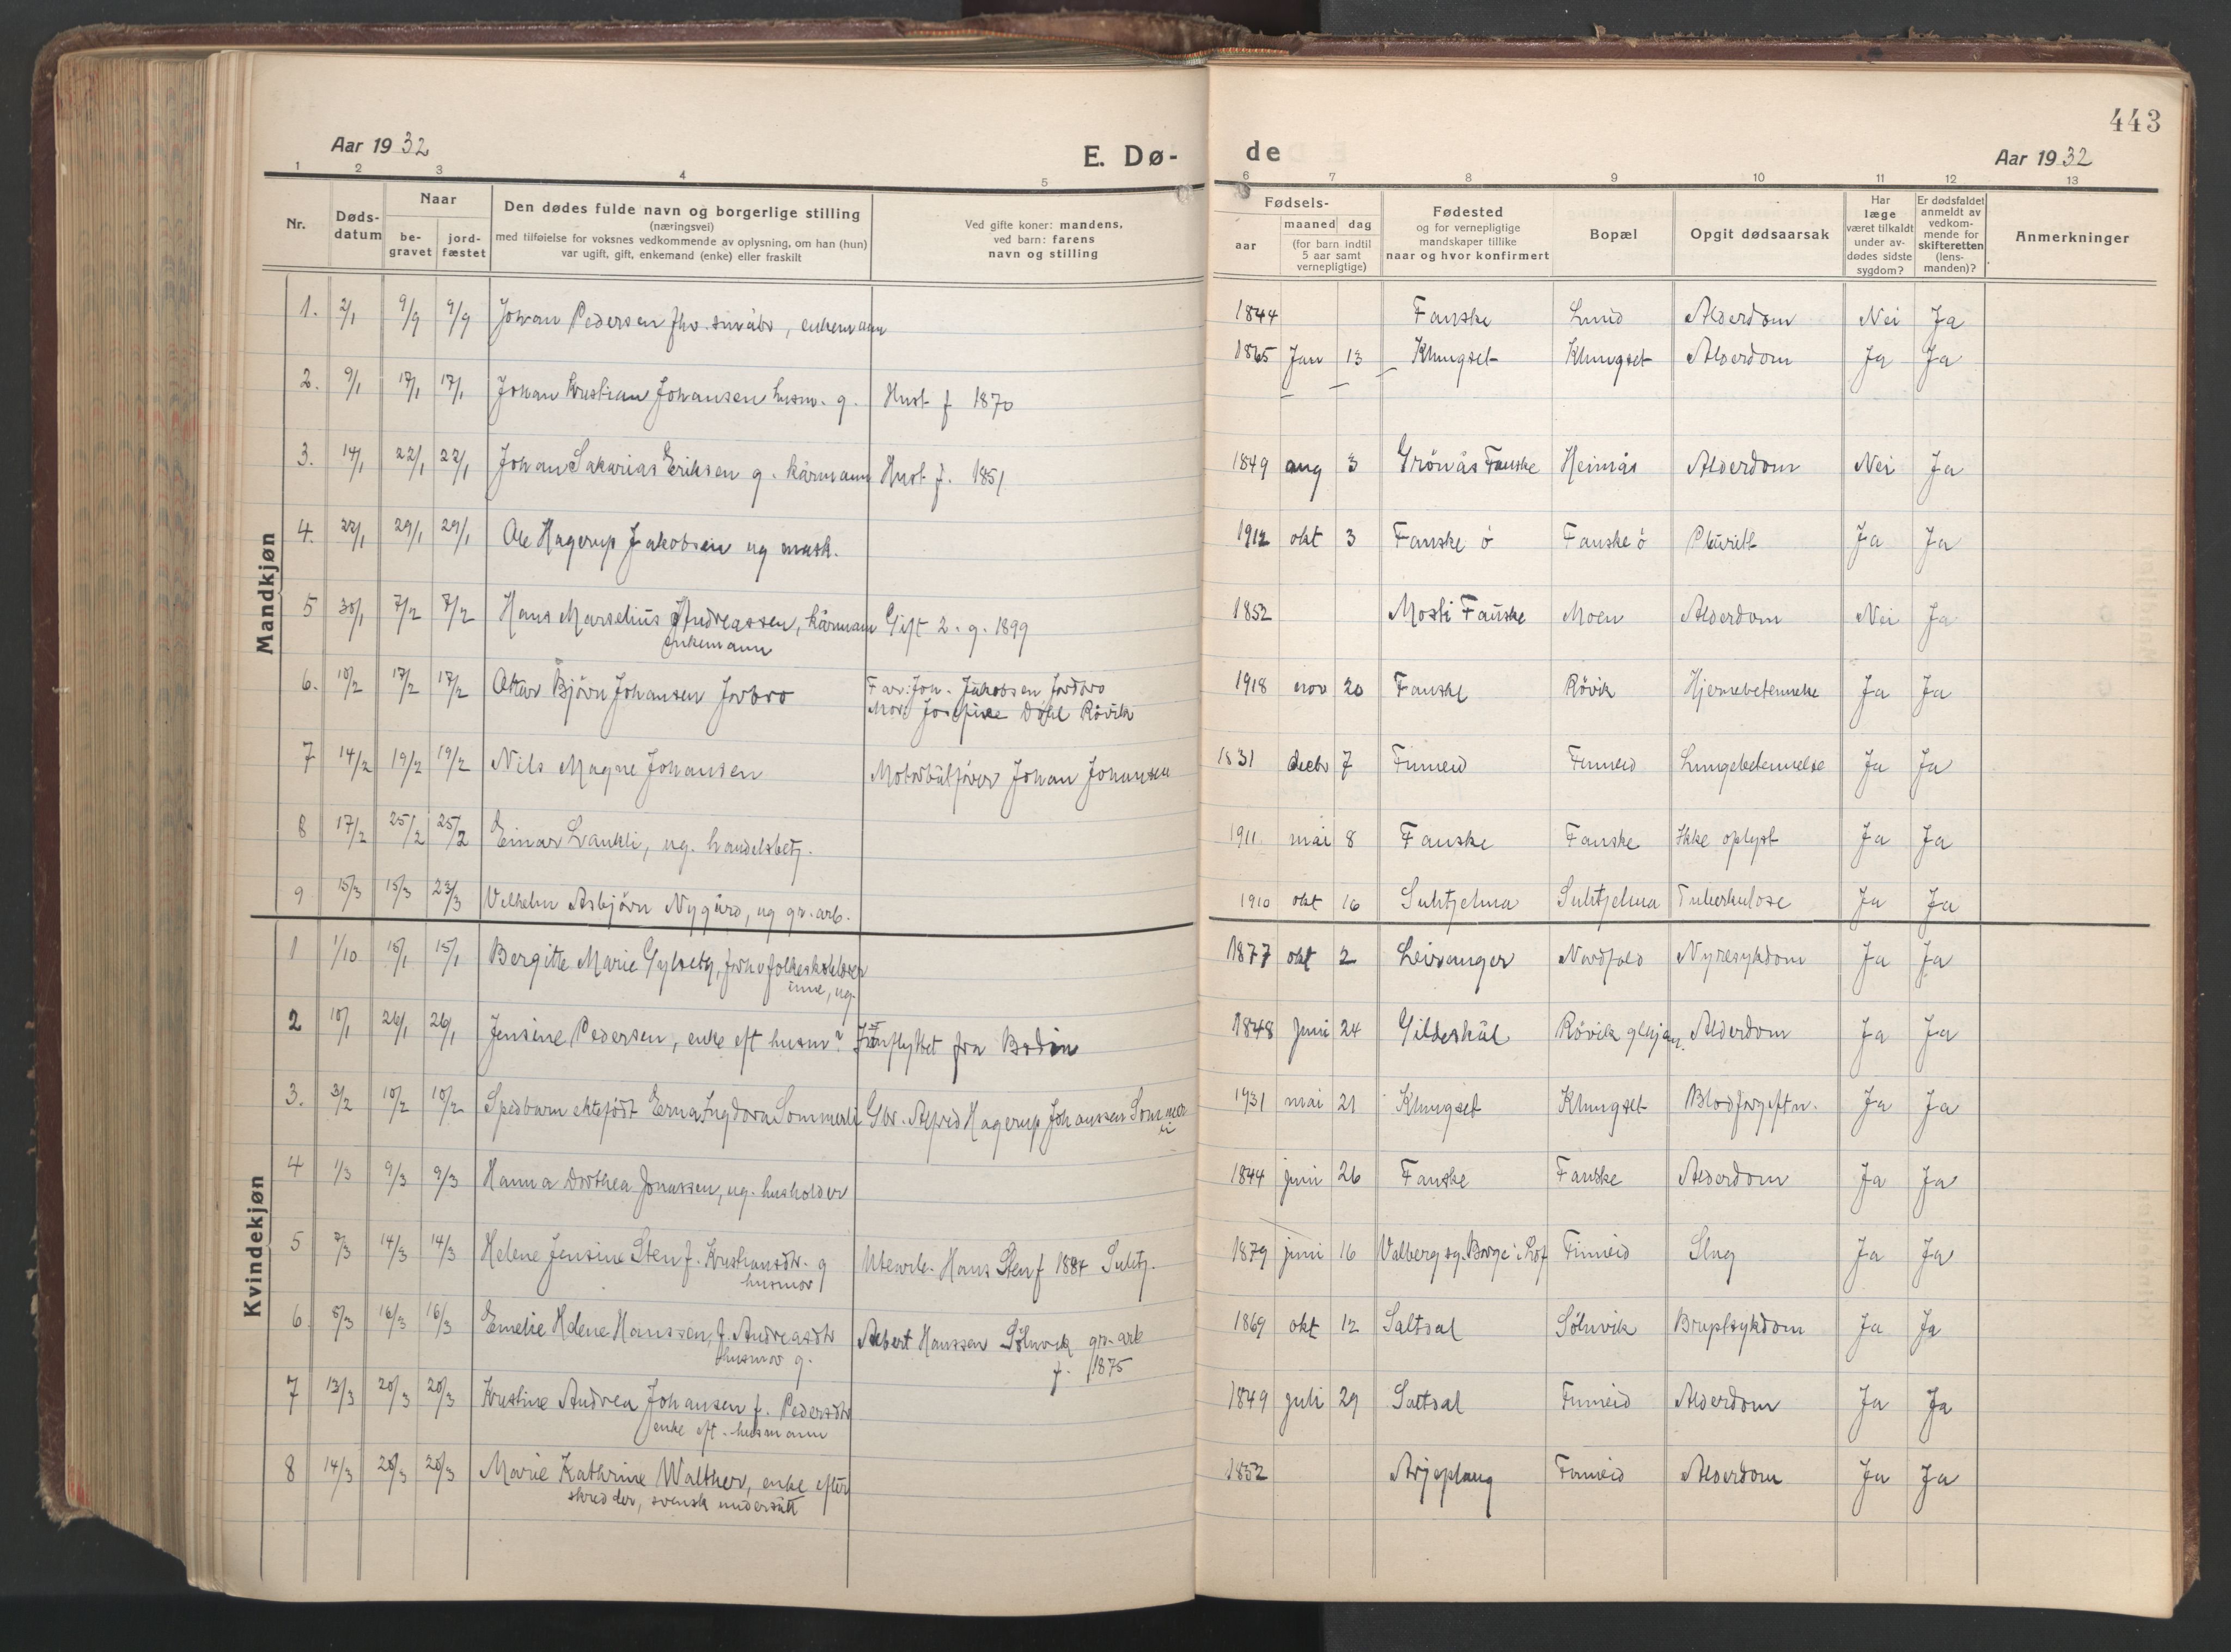 443
Aar 1932
E. Dø-
de
Aar 1932
1 2 3 4 5 6 7 8 9 10 11 12 13
Nr.
Døds-
datum
Naar
be-
gravet
jord-
fæstet
Den dødes fulde navn og borgerlige stilling
(næringsvei)
med tilføielse for voksnes vedkommende av oplysning, om han (hun)
var ugift, gift, enkemand (enke) eller fraskilt
Ved gifte koner: mandens,
ved barn: farens
navn og stilling
Fødsels-
aar
maaned dag
(for barn indtil
5 aar samt
vernepligtige)
Fødested
og for vernepligtige
mandskaper tillike
naar og hvor konfirmert
Bopæl
Opgit dødsaarsak
Har
læge
været tilkaldt
under av-
dødes sidste
sygdom?
Er dødsfaldet
anmeldt av
vedkom-
mende for
skifteretten
(lens-
manden)?
Anmerkninger
Mandkjøn
1. 2/1 9/9 9/9 Johan Pedersen fhv. småbr, enkemann 1844 Fauske Lund Alderdom Nei Ja
2. 9/1 17/1 17/1 Johan Kristian Johansen husm. g. Hust f 1870 1865 Jan 13 Klungset Klungset Alderdom Ja Ja
3. 14/1 22/1 22/1 Johan Sakarias Eriksen g. kårmann Hust f. 1851 1849 aug 3 Grönås Fauske Heimås Alderdom Nei Ja
4. 22/1 29/1 29/1 Ole Hagerup Jakobsen ug mask. 1912 okt 3 Fauske ö Fauske ö Pleuritt Ja Ja
5 30/1 7/2 7/2 Hans Marselius Andreassen, kårmann Gift 2. g. 1899 1852 Mosti Fauske Moen Alderdom Nei Ja
enkemann
6. 10/2 17/2 17/2 Ottar Björn Johansen Jordbro Far: Joh. Jakobsen Jordbro 1918 nov 20 Fauske Rövik Hjernebetennelse Ja Ja
Mor: Josefine Dahl Rövik
7 14/2 19/2 19/2 Nils Magne Johansen Motorbåtförer Johan Johansen 1831 decbr 7 Finneid Finneid Lungebetennelse Ja Ja
8 17/2 25/2 25/2 Einar Lankli, ug. handelsbetj. 1911 mai 8 Fauske Fauske Ikke oplyst Ja Ja
9 15/3 15/3 23/3 Vilhelm Asbjörn Nygård, ug gr. arb. 1910 okt 16 Sulitjelma Sulitjelma Tuberkulose Ja Ja
Kvindekjøn
1 1/10 15/1 15/1 Bergitte Marie Gylseth, forhv folkeskolelærer 1877 okt 2 Leirvanger Nordfold Nyresykdom Ja Ja
inne, ug.
2 10/1 26/1 26/1 Jensine Pedersen, enke eft husm? Innflyttet fra Bodin 1848 juni 24 Gildeskål Rövik Alderdom Ja Ja
3. 3/2 10/2 10/2 Spedbarn ektefödt Erna Ingdora Sommerli Gbr. Alfred Hagerup Johansen Sommer 1931 mai 21 Klungset Klungset Blodforgiftn. Ja Ja
li
4 1/3 9/3 9/3 Hanna Dorthea Jonassen, ug. husholder 1844 juni 26 Fauske Fauske Alderdom Ja Ja
5 7/3 14/3 14/3 Helene Jensine Sten f. Kristiansdtr. g Utearb. Hans Sten f 1884 Sulitj. 1879 juni 16 Valberg sg. Borge i Lof Finneid Slag Ja Ja
husmor
6. 8/3 16/3 16/3 Emelie Helene Hanssen, f. Andreasdtr Albert Hanssen Sölnvik gr. arb 1869 okt 12 Saltdal Sölnvik Brystsykdom Ja Ja
husmor g. f. 1875
7 13/3 20/3 20/3 Kristine Andrea Johansen f. Pedersdtr 1849 juli 29 Saltdal Finneid Alderdom Ja Ja
enke eft. husmann
8 14/3 20/3 20/3 Marie Kathrine Walther, enke efter 1852 Arjeplaug Finneid Alderdom Ja Ja
skredder, svensk undersått